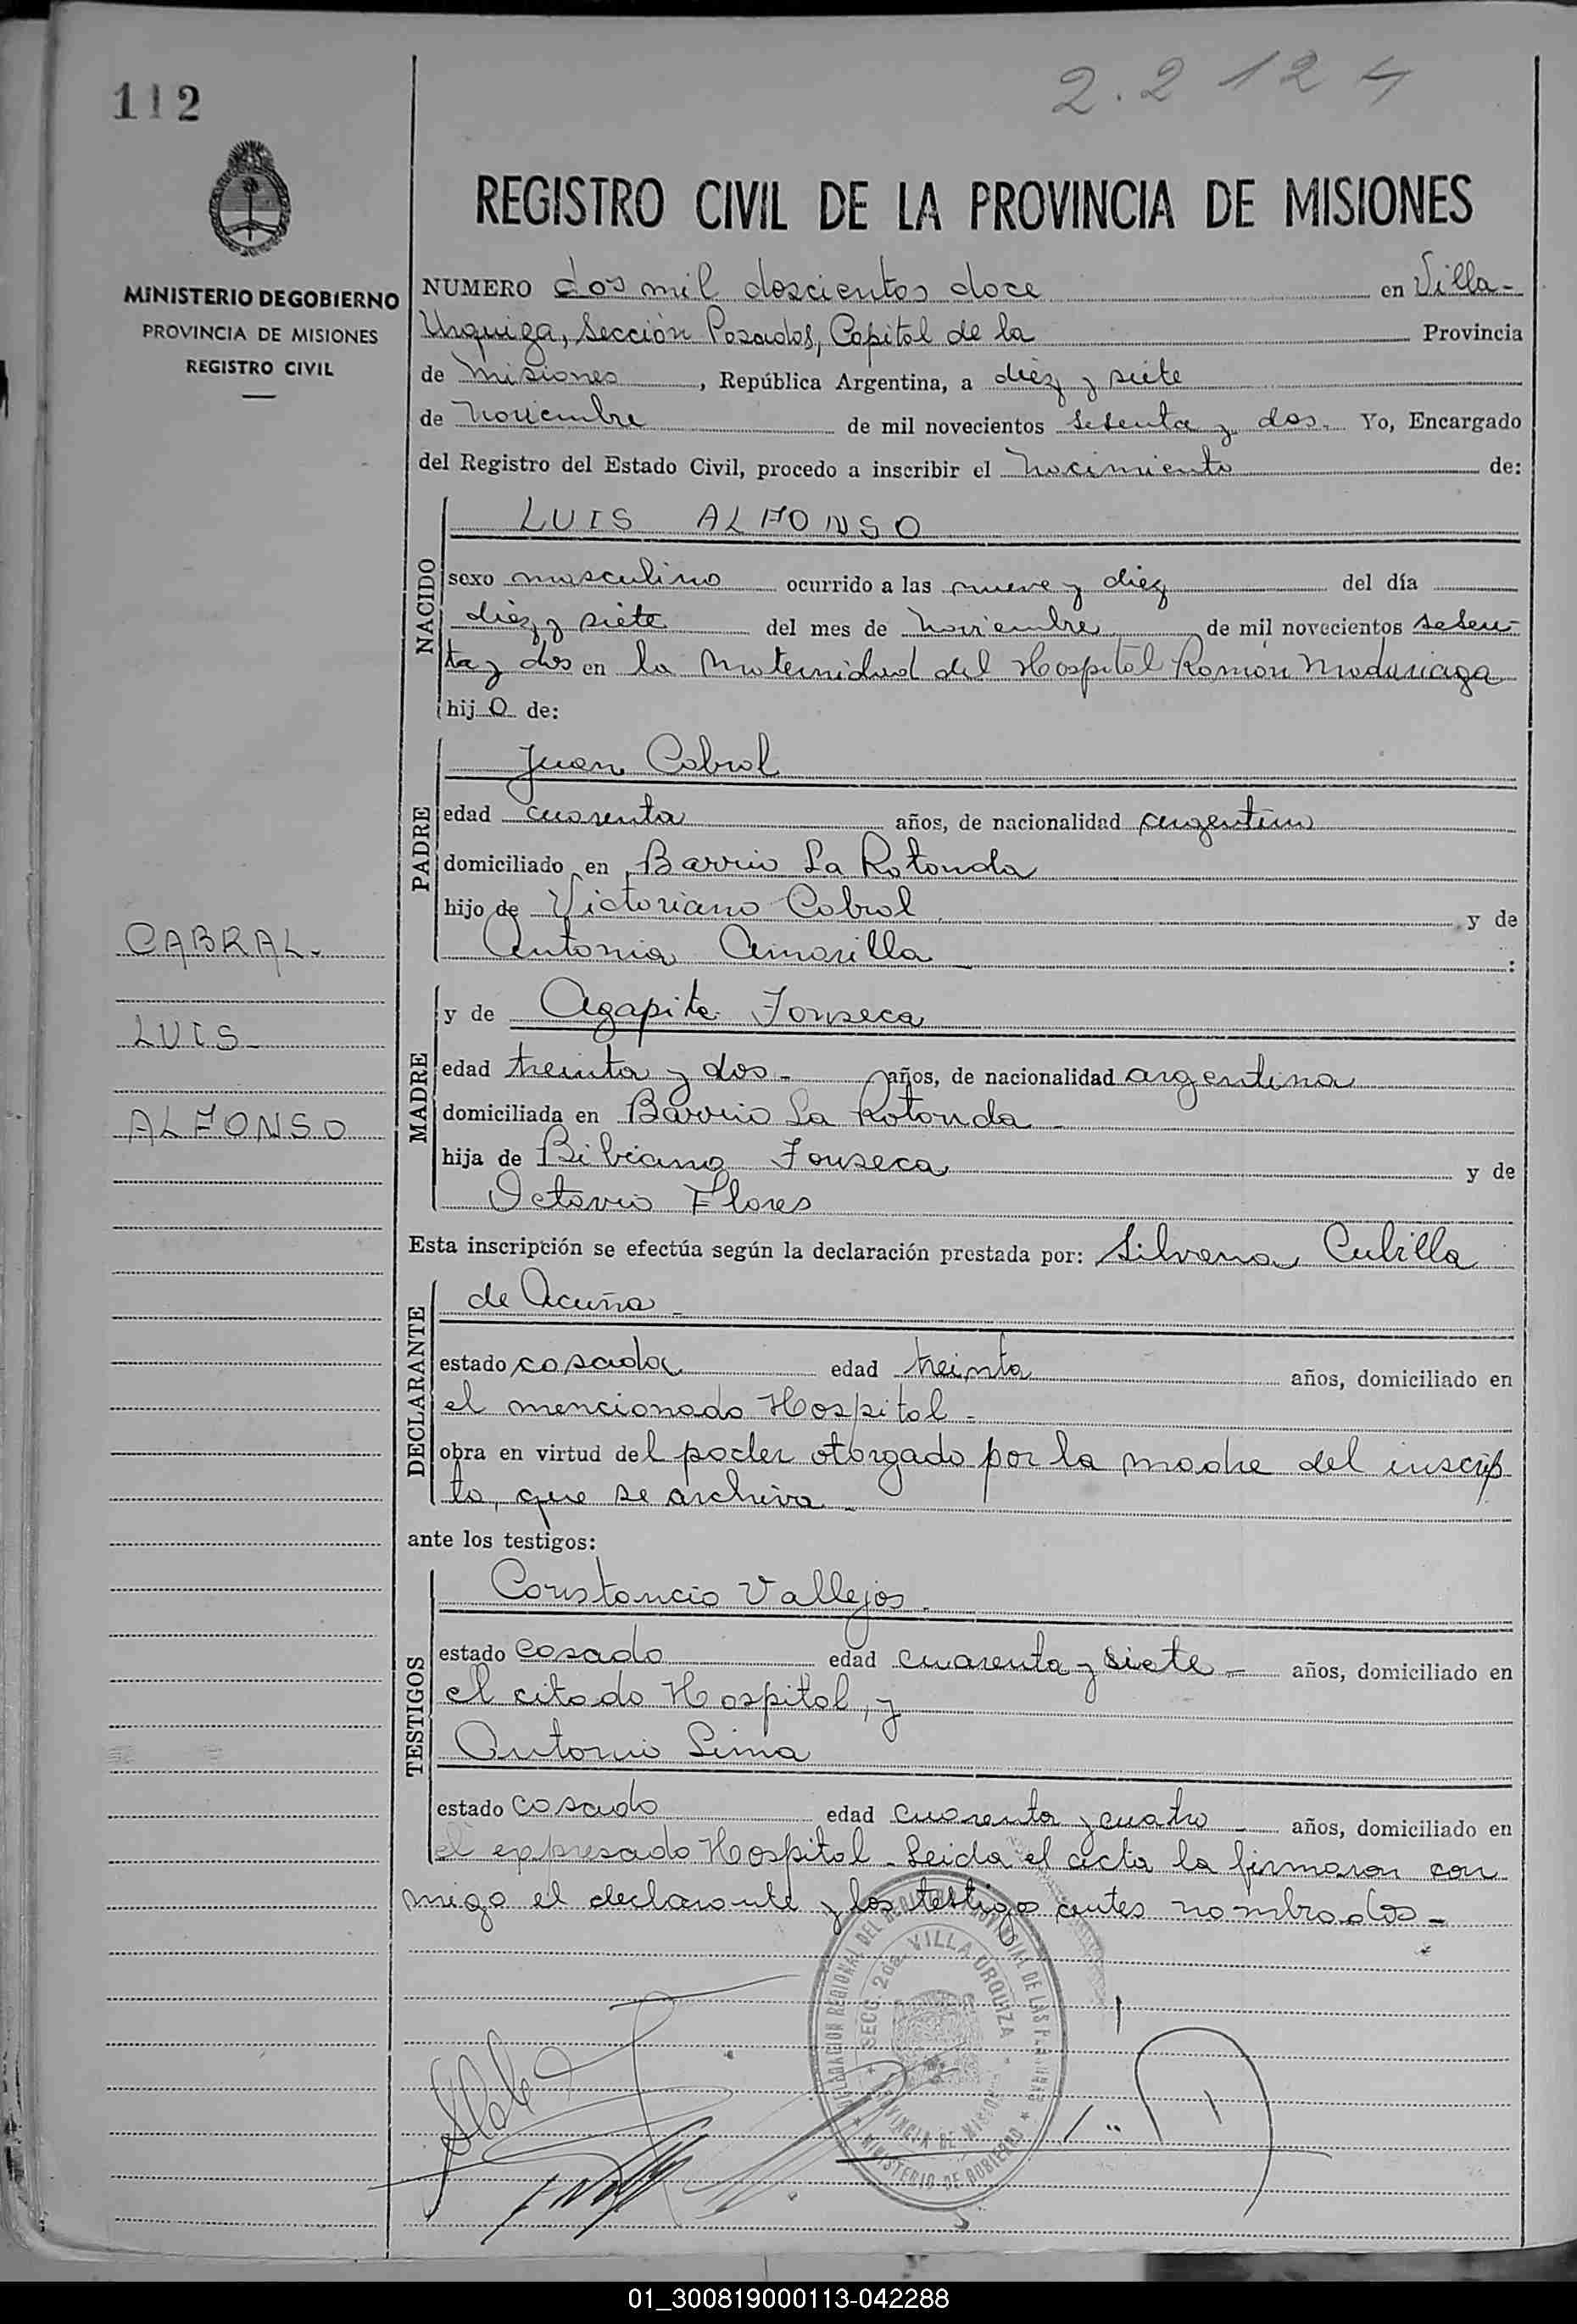 112
2.212 4
REGISTRO CIVIL DE LA PROVINCIA DE MISIONES
MINISTERIO DE GOBIERNO
PROVINCIA DE MISIONES
REGISTRO CIVIL
NUMERO dos mil doscientos doce en Villa-
Urquiza, Sección Posadas, Capital de la Provincia
de Misiones, República Argentina, a diez y siete
de noviembre de mil novecientos setenta y dos. Yo, Encargado
del Registro del Estado Civil, procedo a inscribir el nacimiento de:
NACIDO
LUIS ALFONSO
sexo masculino ocurrido a las nueve y diez del día
diez y siete del mes de noviembre de mil novecientos seten-
ta y dos en la Maternidad del Hospital Ramón Madariaga
hijo de:
PADRE
Juan Cabral
edad cuarenta años, de nacionalidad argentino
domiciliado en Barrio La Rotonda
hijo de Victoriano Cabral y de
Antonia Amarilla :
CABRAL.
LUIS
ALFONSO
MADRE
y de Agapita Fonseca
edad treinta y dos - años, de nacionalidad argentina
domiciliada en Barrio La Rotonda -
hija de Bibiano Fonseca y de
Octavia Flores
Esta inscripción se efectúa según la declaración prestada por: Silvana Cubilla
DECLARANTE
de Acuña -
estado casada edad treinta años, domiciliado en
el mencionado Hospital -
obra en virtud del poder otorgado por la madre del inscrip
to, que se archiva -
ante los testigos:
TESTIGOS
Constancio Vallejos -
estado casado edad cuarenta y siete - años, domiciliado en
el citado Hospital, y
Antonio Lima
estado casado edad cuarenta y cuatro - años, domiciliado en
el expresado Hospital - Leida el acta la firmaron con
migo el declarante y los testigos antes nombrados -
DELEGACION REGIONAL DEL REGISTRO PROVINCIAL DE LAS PERSONAS
SECC. 2da. VILLA URQUIZA
PROVINCIA DE MISIONES
MINISTERIO DE GOBIERNO
01_300819000113-042288